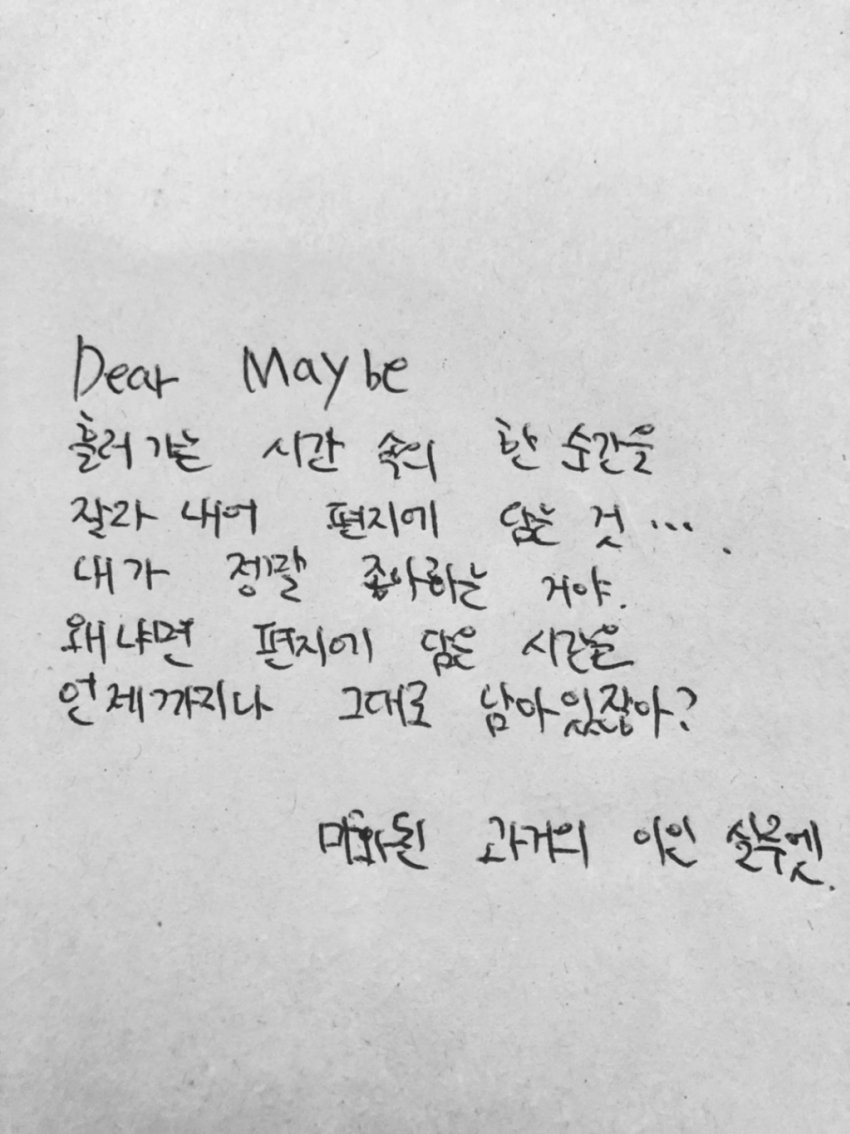 Dear Maybe
흘러가는 시간 속의 한 순간을
잘라 내어 편지에 담는 것….
내가 정말 좋아하는 거야.
왜냐면 편지에 담은 시간을
언제까지나 그대로 남아있잖아?
미화된 과거의 이인 실루엣.